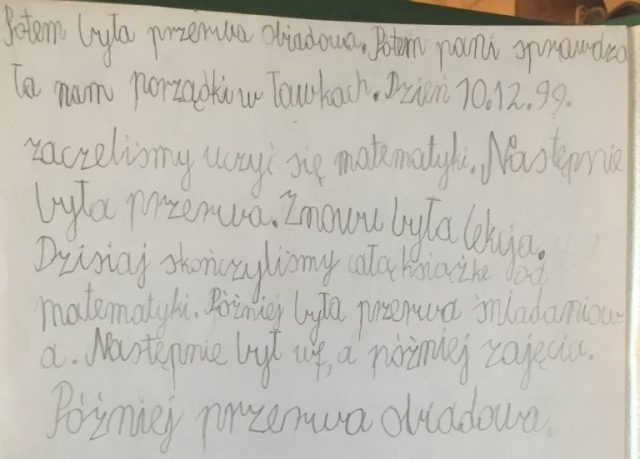 Potem była przerwa obiadowa. Potem pani sprawdza
ła nam porządki w ławkach. Dzień 10.12.99.
zaczeliśmy uczyć się matematyki. Następnie
była przerwa. Znowu była lekcja.
Dzisiaj skończyliśmy całą książkę od
matematyki. Póżniej była przerwa śniadaniow
a. Następnie był wf, a póżniej zajęcia.
Póżniej przerwa obiadowa.